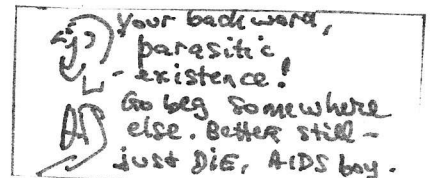 Your backward,
parasitic
- existence!
Go beg somewhere
else. Better still -
just DiE, AIDS boy.